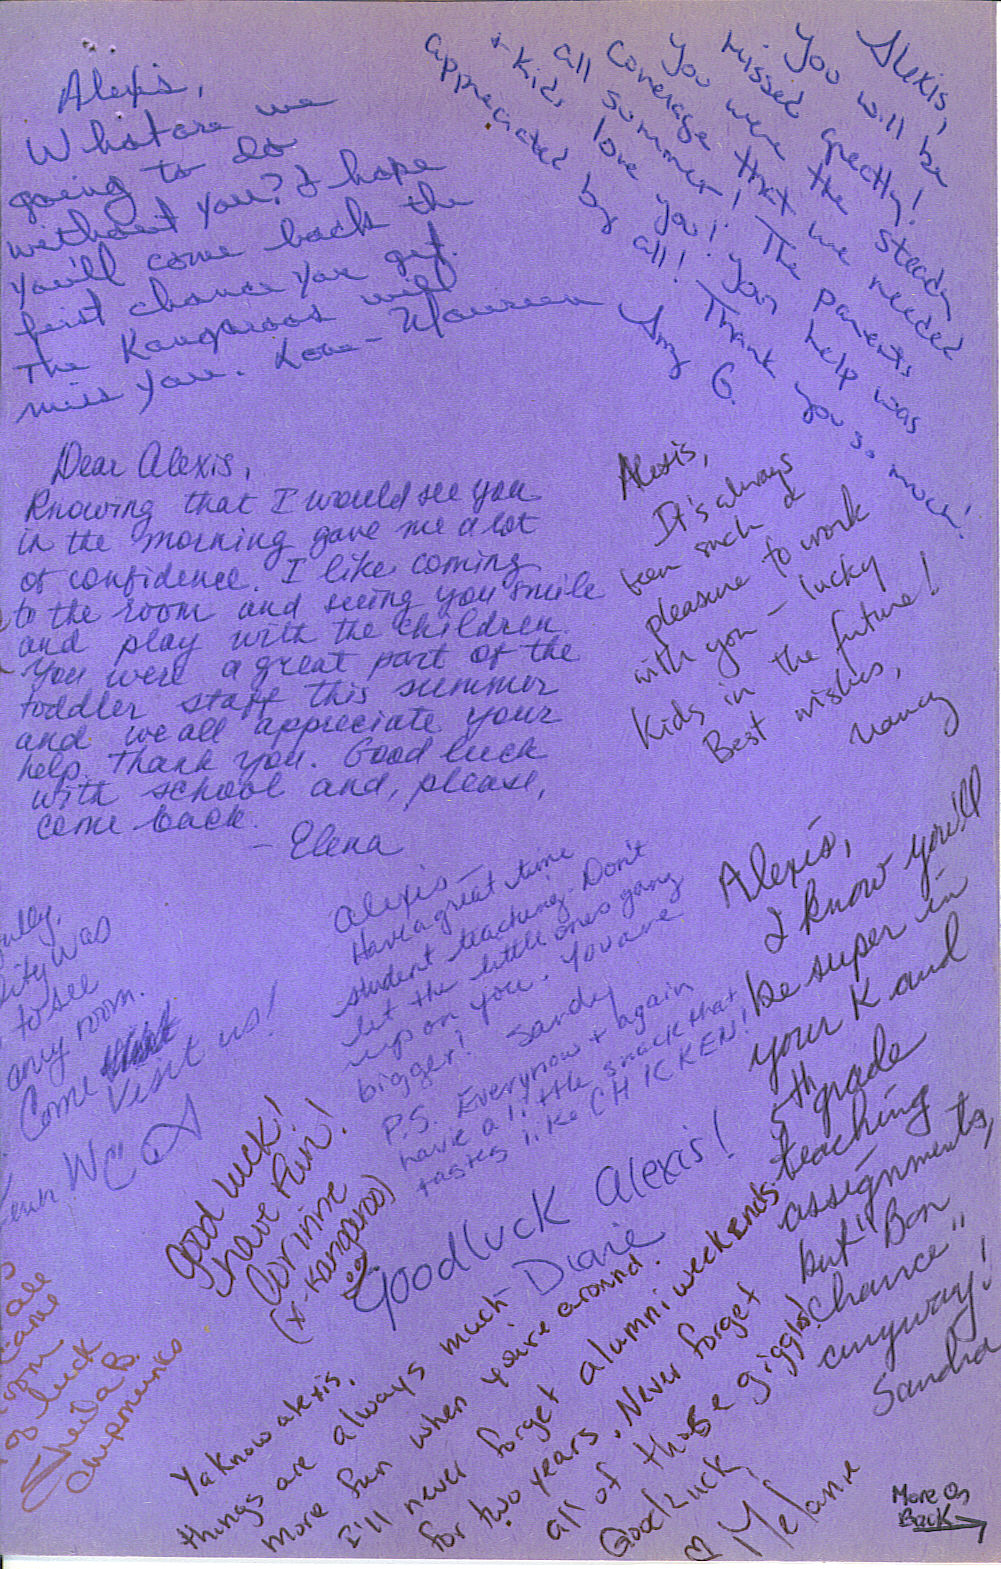 Alexis,
What are we
going to do
without you? I hope
you'll come back the
first chance you get.
The Kangaroos will
miss you. Love - Maureen
Alexis,
You will be
missed greatly!
You were the steady
coverage that we needed
all summer! The parents
+ kids love you! Your help was
appreciated by all! Thank you so much!
Amy G.
Dear Alexis,
Knowing that I would see you
in the morning gave me a lot
of confidence. I like coming
to the room and seeing you smile
and play with the children.
You were a great part of the
toddler staff this summer
and we all appreciate your
help. Thank you. Good luck
with school and, please,
come back.
- Elena
Alexis,
It's always
been such a
pleasure to work
with you - lucky
kids in the future!
Best wishes,
Nancy
Alexis -
Have a great time
student teaching - Don't
let the little ones gang
up on you. You are
bigger! Sandy
P.S. Every now + again
have a little snack that
tastes like CHICKEN!
Alexis,
I know you'll
be super in
your K and
5th grade
teaching
assignments,
but "Bon
chance"
anyway!
Sandra
ity was
to see
any room.
Come
Visit us!
Good luck!
have fun!
Corinne
(x-Kangaroo)
Goodluck Alexis!
Diane
Ya Know alexis,
things are always much
more fun when you're around.
I'll never forget alumni weekends
for two years. Never forget
all of those giggles!
Good Luck
♡ Melanie
luck
Sheila B.
Chipmunks
More On
Back →